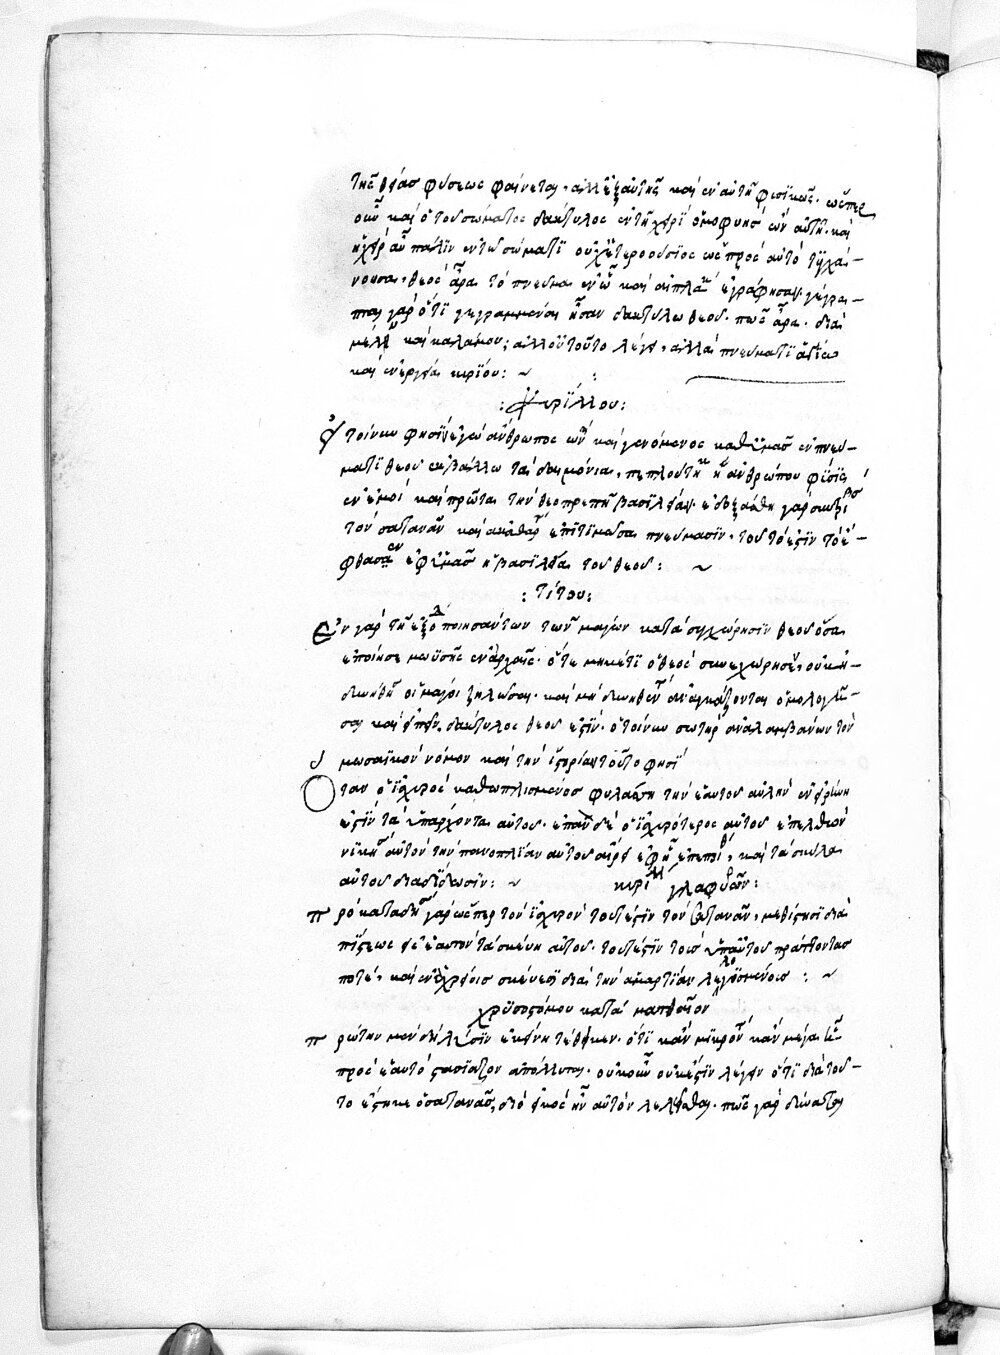 της θείας φύσεως φαίνεται, ἀλλ' ἐξ αὐτῆς καὶ ἐν αὐτῇ φυσικῶς. ὥσπερ
οὖν καὶ ὁ τοῦ σώματος δάκτυλος ἐν τῇ χειρὶ ὁμοφυὴς ὢν αὐτῇ. καὶ
ἡ χεὶρ αὖ πάλιν ἐν τῷ σώματι οὐχ ἑτεροούσιος ὡς πρὸς αὐτὸ τυγχά-
νουσα, θεὸς ἄρα τὸ πνεῦμα ἐν ᾧ καὶ αἱ πλάκες ἐγράφησαν. γέγρα-
πται γὰρ ὅτι γεγραμμέναι ἦσαν δακτύλω θεοῦ. πῶς ἄρα. διὰ
μέλανος καὶ καλάμου; ἀλλ' οὐ τοῦτο λέγει, ἀλλὰ πνεύματι ἁγίω
καὶ ἐνεργεία κυρίου: ~
: Κυρίλλου:
Εἰ τοίνυν φησὶν ἐγὼ ἄνθρωπος ὢν καὶ γενόμενος καθ' ὑμᾶς ἐν πνεύ-
ματι θεοῦ ἐκβάλλω τὰ δαιμόνια, πεπλούτηκεν ἡ ἀνθρώπου φύσις
ἐν ἐμοὶ καὶ πρῶτα τὴν θεοπρεπῆ βασιλείαν.
τὸν σατανᾶν καὶ ἀκαθάρτοις ἐπιτιμῶσα πνεύμασιν, τοῦτό ἐστιν τὸ ἔ-
φθασεν ἐφ' ὑμᾶς ἡ βασιλεία τοῦ θεοῦ: ~
: Τίτου:
Ἐν γὰρ τῇ ποιησάντων τῶν μάγων κατὰ συγχώρησιν θεοῦ ὅσα
ἐποίησε μωϋσῆς ἐν ἀρχαῖς. ὅτε μηκέτι ὁ θεὸς συνεχώρησεν, οὐκ ἠ-
δυνήθησαν οἱ μάγοι ζηλῶσαι. καὶ μὴ δυνηθέντες ἀναγκάζονται ὁμολογῆ-
σαι καὶ εἰπεῖν, δάκτυλος θεοῦ ἐστιν. ὁ τοίνυν σωτὴρ ἀναλαμβάνων τὸν
μωσαϊκὸν νόμον καὶ τὴν ἱστορίαν τοῦτο φησί
Ὅταν ὁ ἰσχυρὸς καθωπλισμένος φυλάσση τὴν ἑαυτοῦ αὐλὴν ἐν εἰρήνη
ἐστὶν τὰ ὑπάρχοντα αὐτοῦ. ἐπὰν δὲ ὁ ἰσχυρότερος αὐτοῦ ἐπελθὼν
νικήση αὐτὸν τὴν πανοπλίαν αὐτοῦ αἴρει ἐφ' ᾗ ἐπεποίθει, καὶ τὰ σκῦλα
αὐτοῦ διαδίδωσιν: ~ κυρίλλου γλαφυρῶν:
Προκαταδήσας γὰρ ὥσπερ τὸν ἰσχυρὸν τουτέστιν τὸν σατανᾶν, μεθίστησι διὰ
πίστεως εἰς ἑαυτὸν τὰ σκεύη αὐτοῦ. τουτέστιν τοὺς ὑπ' αὐτοῦ πράττοντας
ποτὲ, καὶ ἐν ἀχρείοις σκεύεσι διὰ τὴν ἁμαρτίαν λελογισμένους : ~
χρυσοστόμου κατὰ ματθαῖον
Πρώτην μὲν διάλυσιν ἐκείνη τέθεικεν. ὅτι κἂν μικρὸν κἂν μέγα ᾖ
πρὸς ἑαυτὸ στασιάζον ἀπόλλυται. οὐκοῦν οὐκ ἔστιν λέγειν ὅτι διὰ τοῦ-
το ἕστηκε ὁ σατανᾶς, διὸ εἰκὸς ἦν αὐτὸν λελεῖφθαι. πῶς γὰρ δύναται